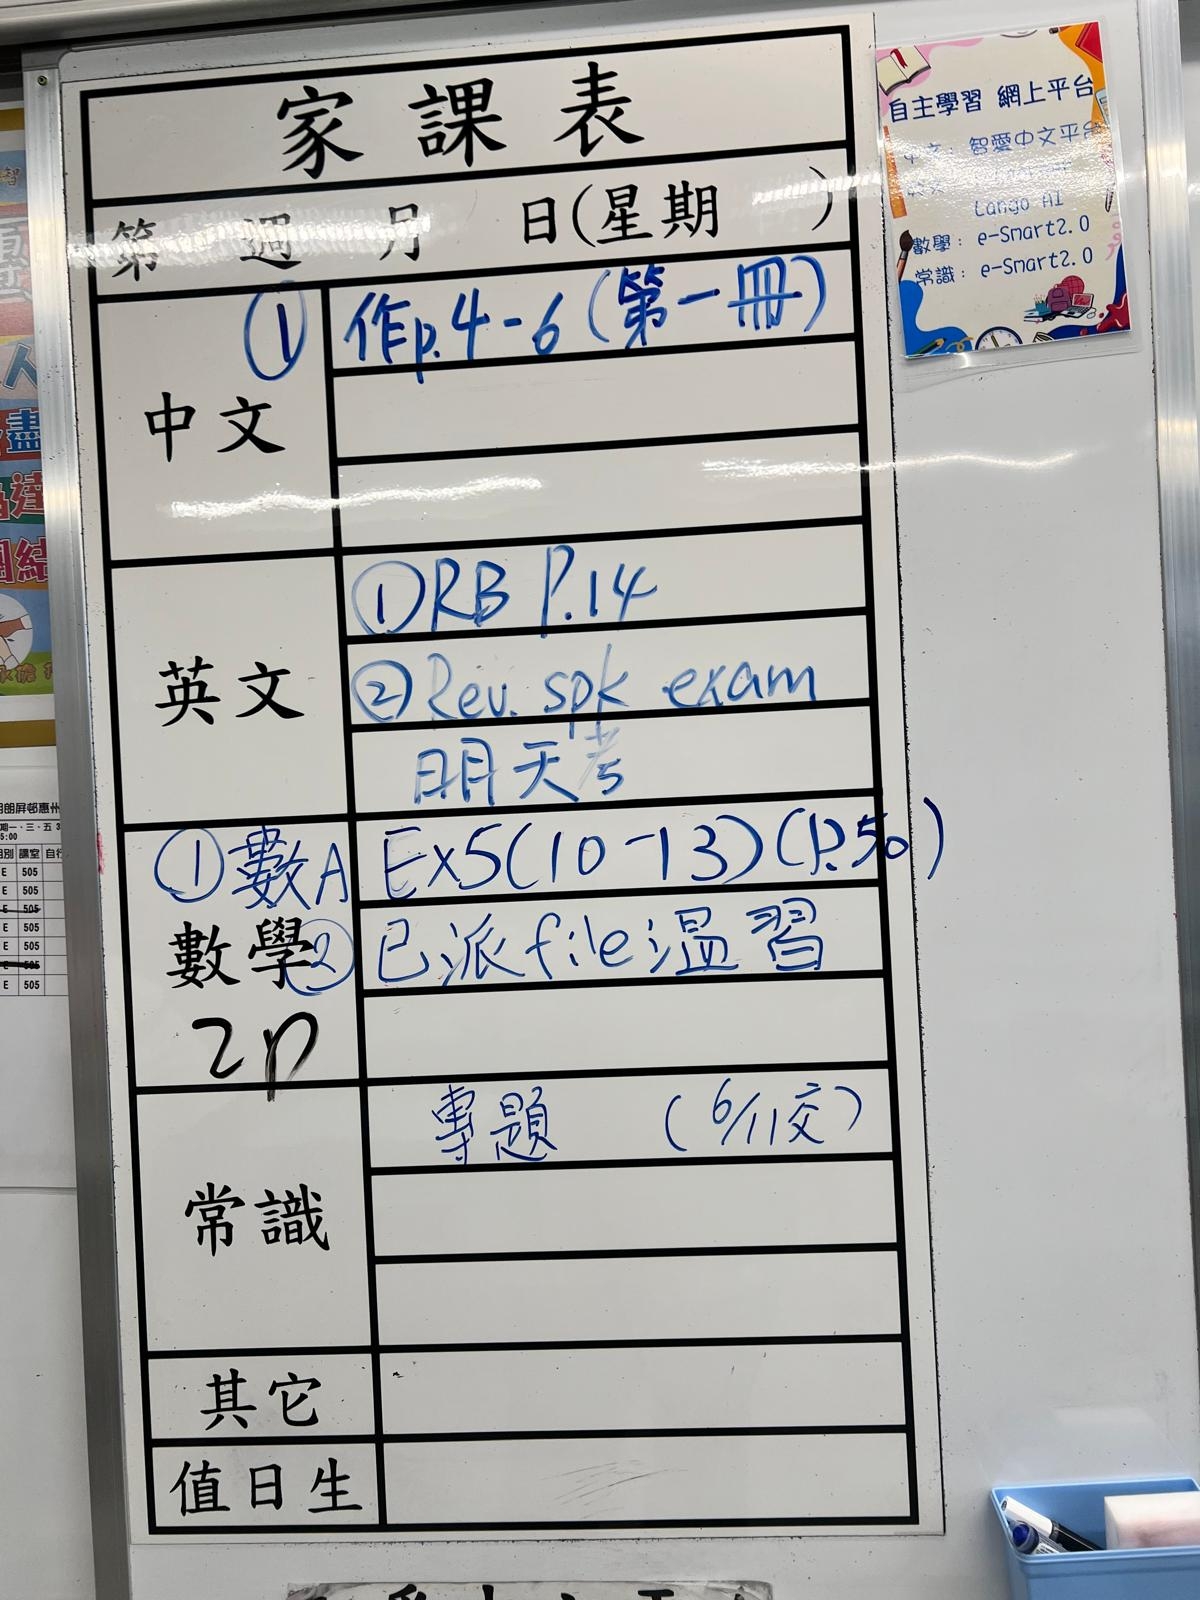 家課表
第 週 月 日(星期 )
中文
① 作p.4-6(第一冊)
英文
① RB P.14
② Rev. spk exam
明天考
數學
① 數A Ex5(10-13)(P.50)
② 已派file溫習
2p
常識
專題 (6/11交)
其它
值日生
自主學習 網上平台
中文: 智愛中文平台
Lango AI
數學: e-Smart2.0
常識: e-Smart2.0
505
505
505
505
505
505
505